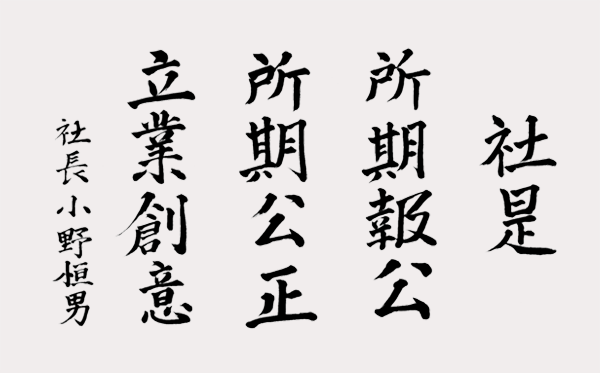 社是
所期報公
所期公正
立業創意
社長小野恒男